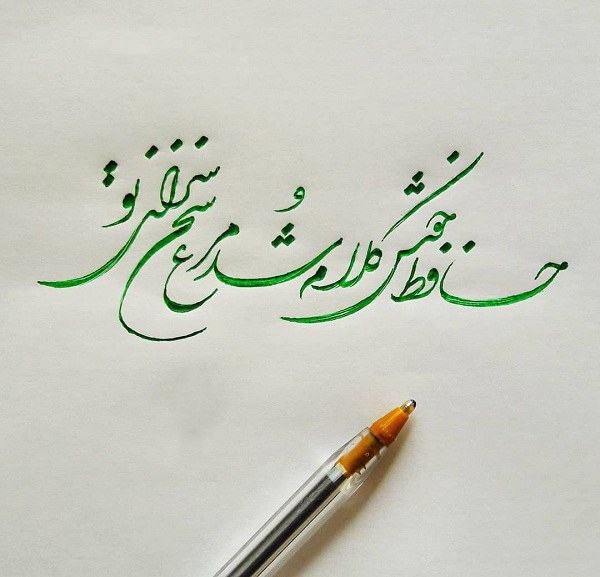 حافظ خوش کلام شُد مرغ سخن سرای تو